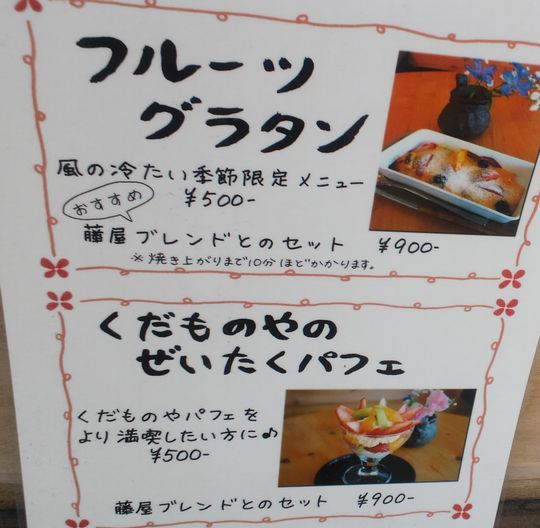 フルーツ
グラタン
風の冷たい季節限定メニュー
¥500-
おすすめ
藤屋ブレンドとのセット ¥900-
※焼き上がりまで10分ほどかかります。
くだものやの
ぜいたくパフェ
くだものやパフェを
より満喫したい方に♪
¥500-
藤屋ブレンドとのセット ¥900-